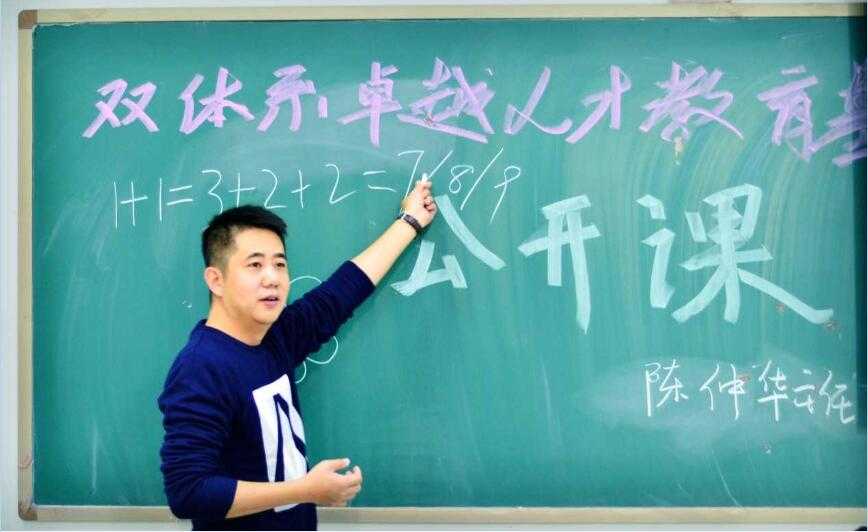 双体系卓越人才教育基
1+1=3+2+2=7/8/9
公开课
陈仲华主任